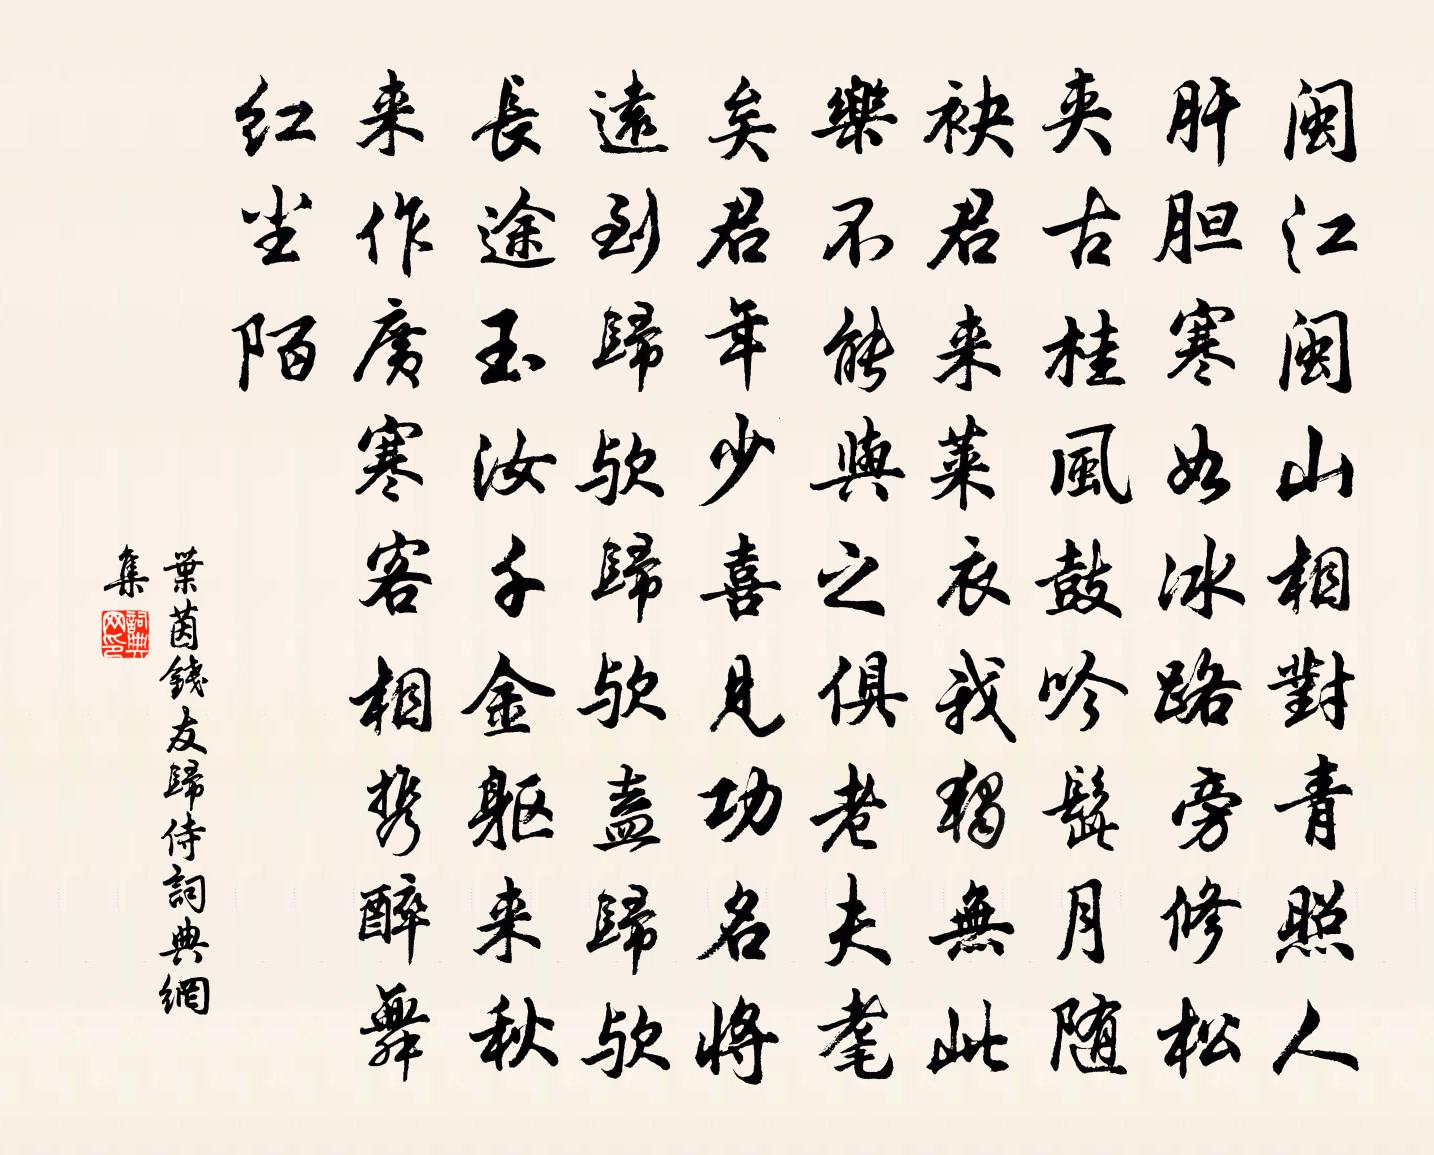 闽江闽山相對青照人
肝胆寒如冰路旁修松
夹古桂風鼓吟髭月随
袂君来莱衣我独無此
樂不能與之俱老夫耄
矣君年少喜見功名将
遠到歸欤歸欤盍歸欤
長途玉汝千金躯来秋
来作廣寒客相携醉舞
红尘陌
葉茵錢友歸侍詞典網
集
詞典
网印